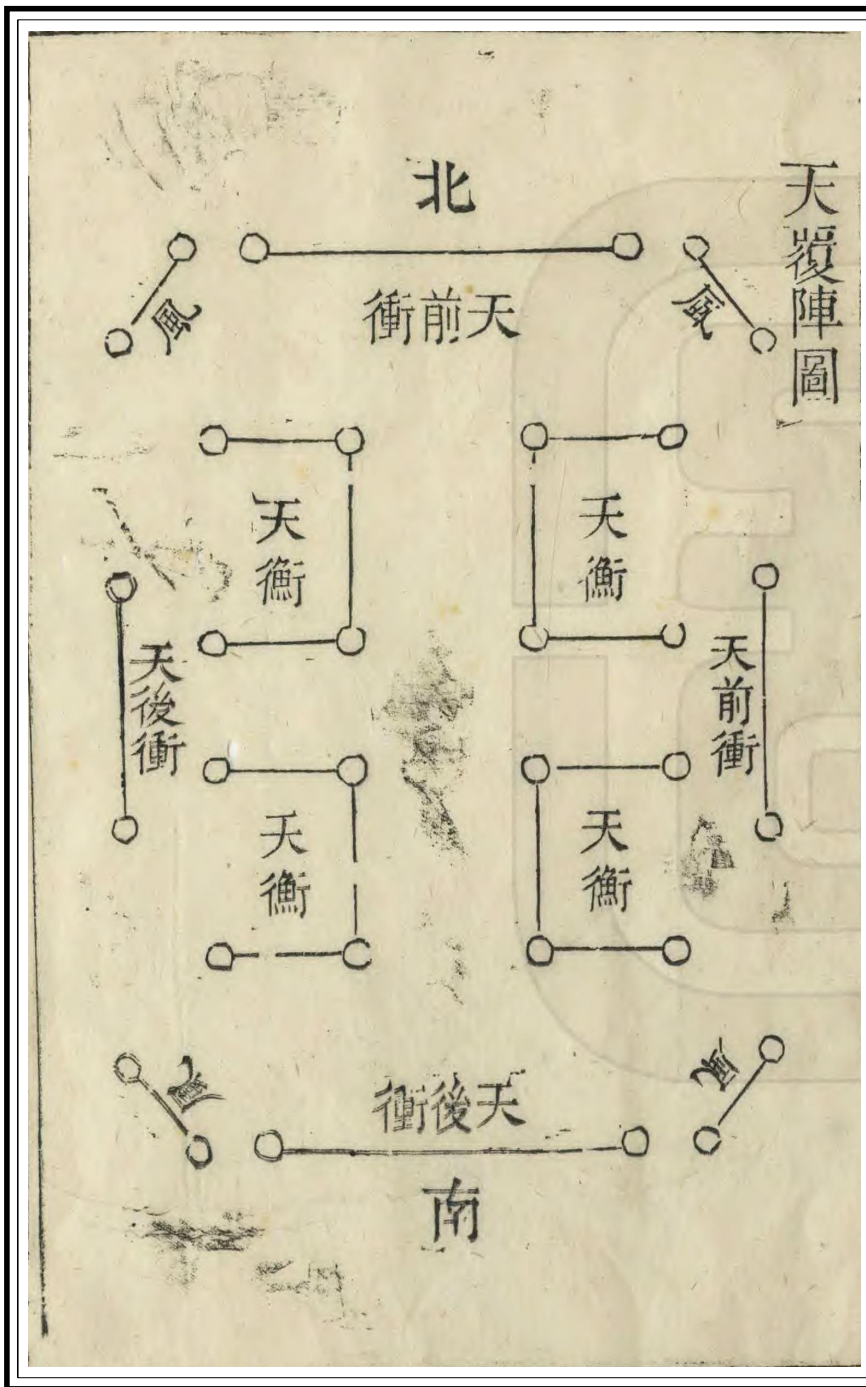 天覆陣圖
北
風
天前衝
風
天衡
天衡
天前衝
天後衝
天衡
天衡
風
天後衝
風
南